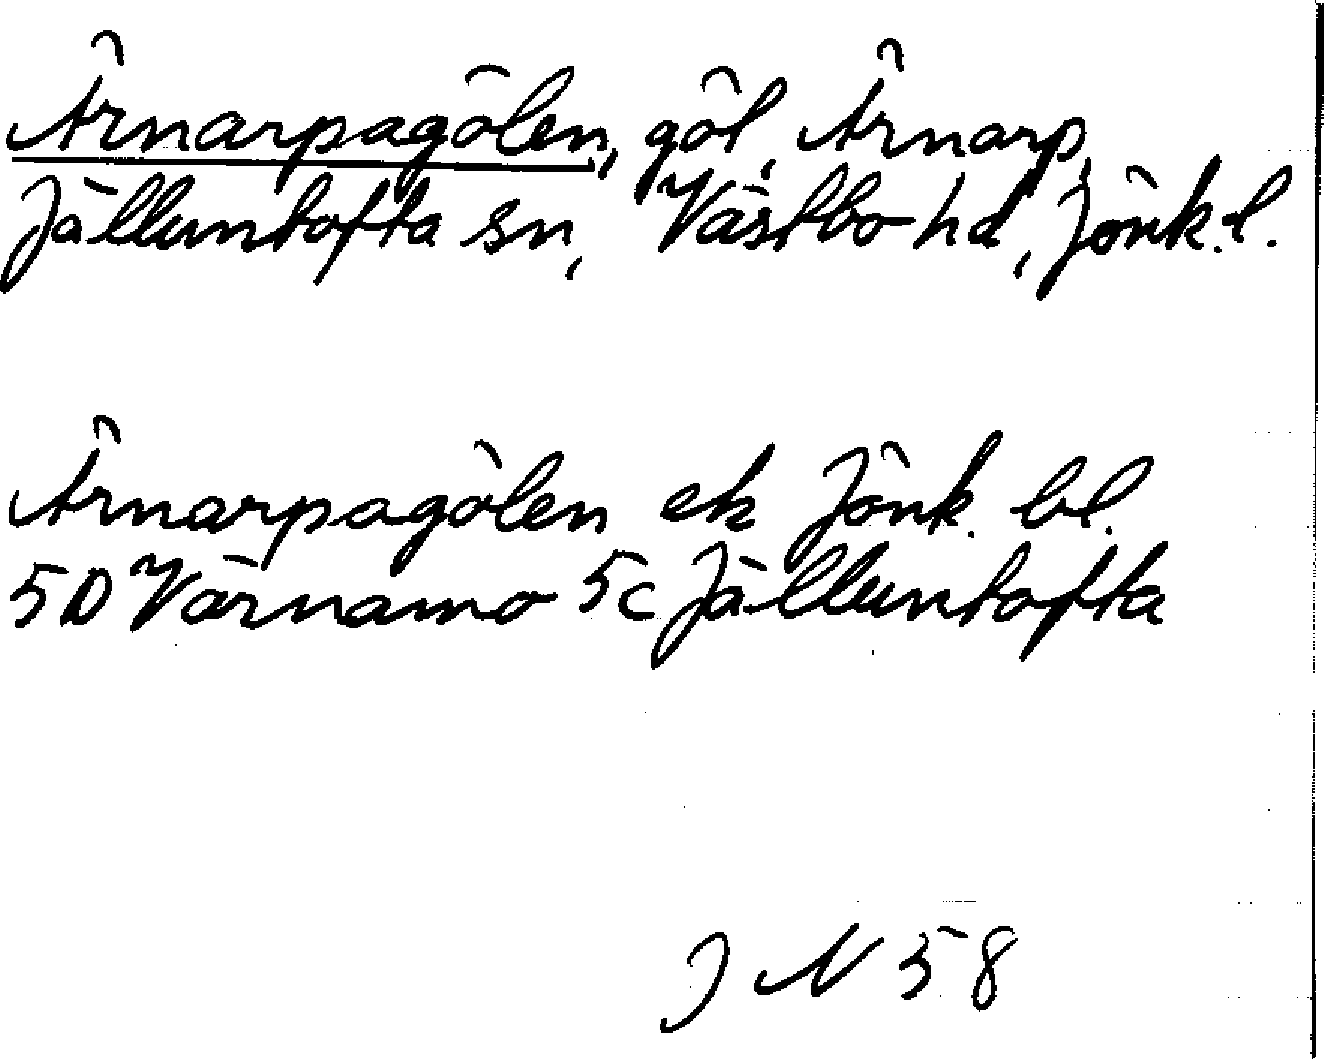 Årnarpagölen, göl, Årnarp,
Jälluntofta sn, Västbo hd, Jönk.l.
Årnarpagölen ek Jönk. bl.
5D Värnamo 5c Jälluntofta
J N 58